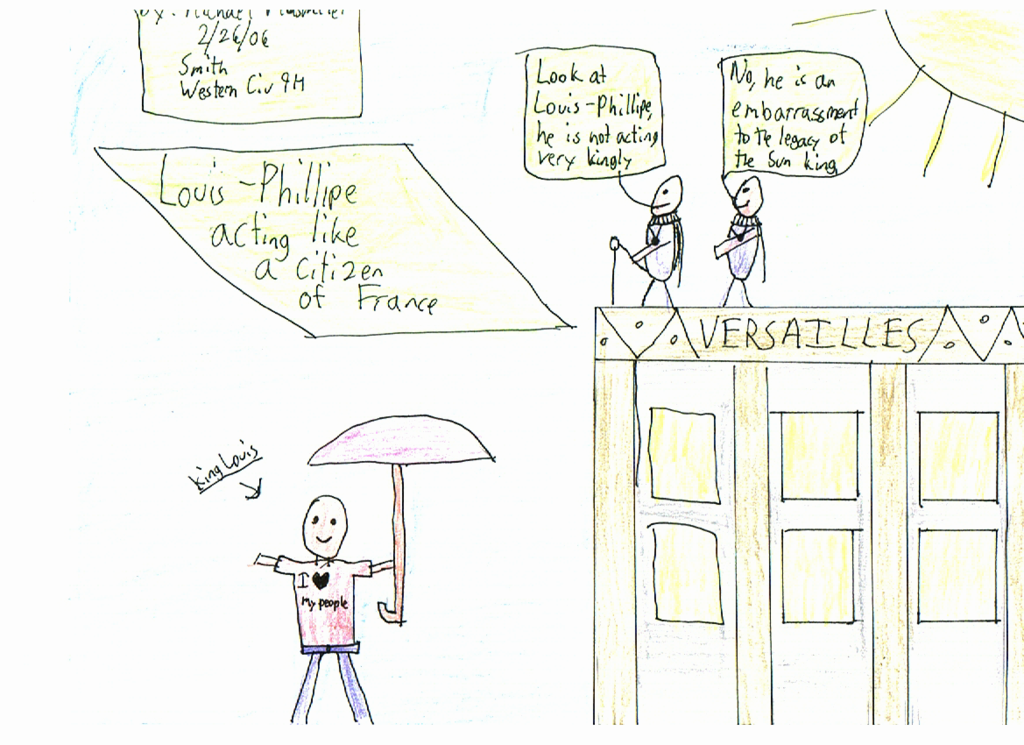 By: Michael
2/26/06
Smith
Western Civ 9H
Louis-Phillipe
acting like
a citizen
of France
Look at
Louis-Phillipe,
he is not acting
very kingly
No, he is an
embarrassment
to the legacy of
the Sun king
VERSAILLES
King Louis
I ♥
My people